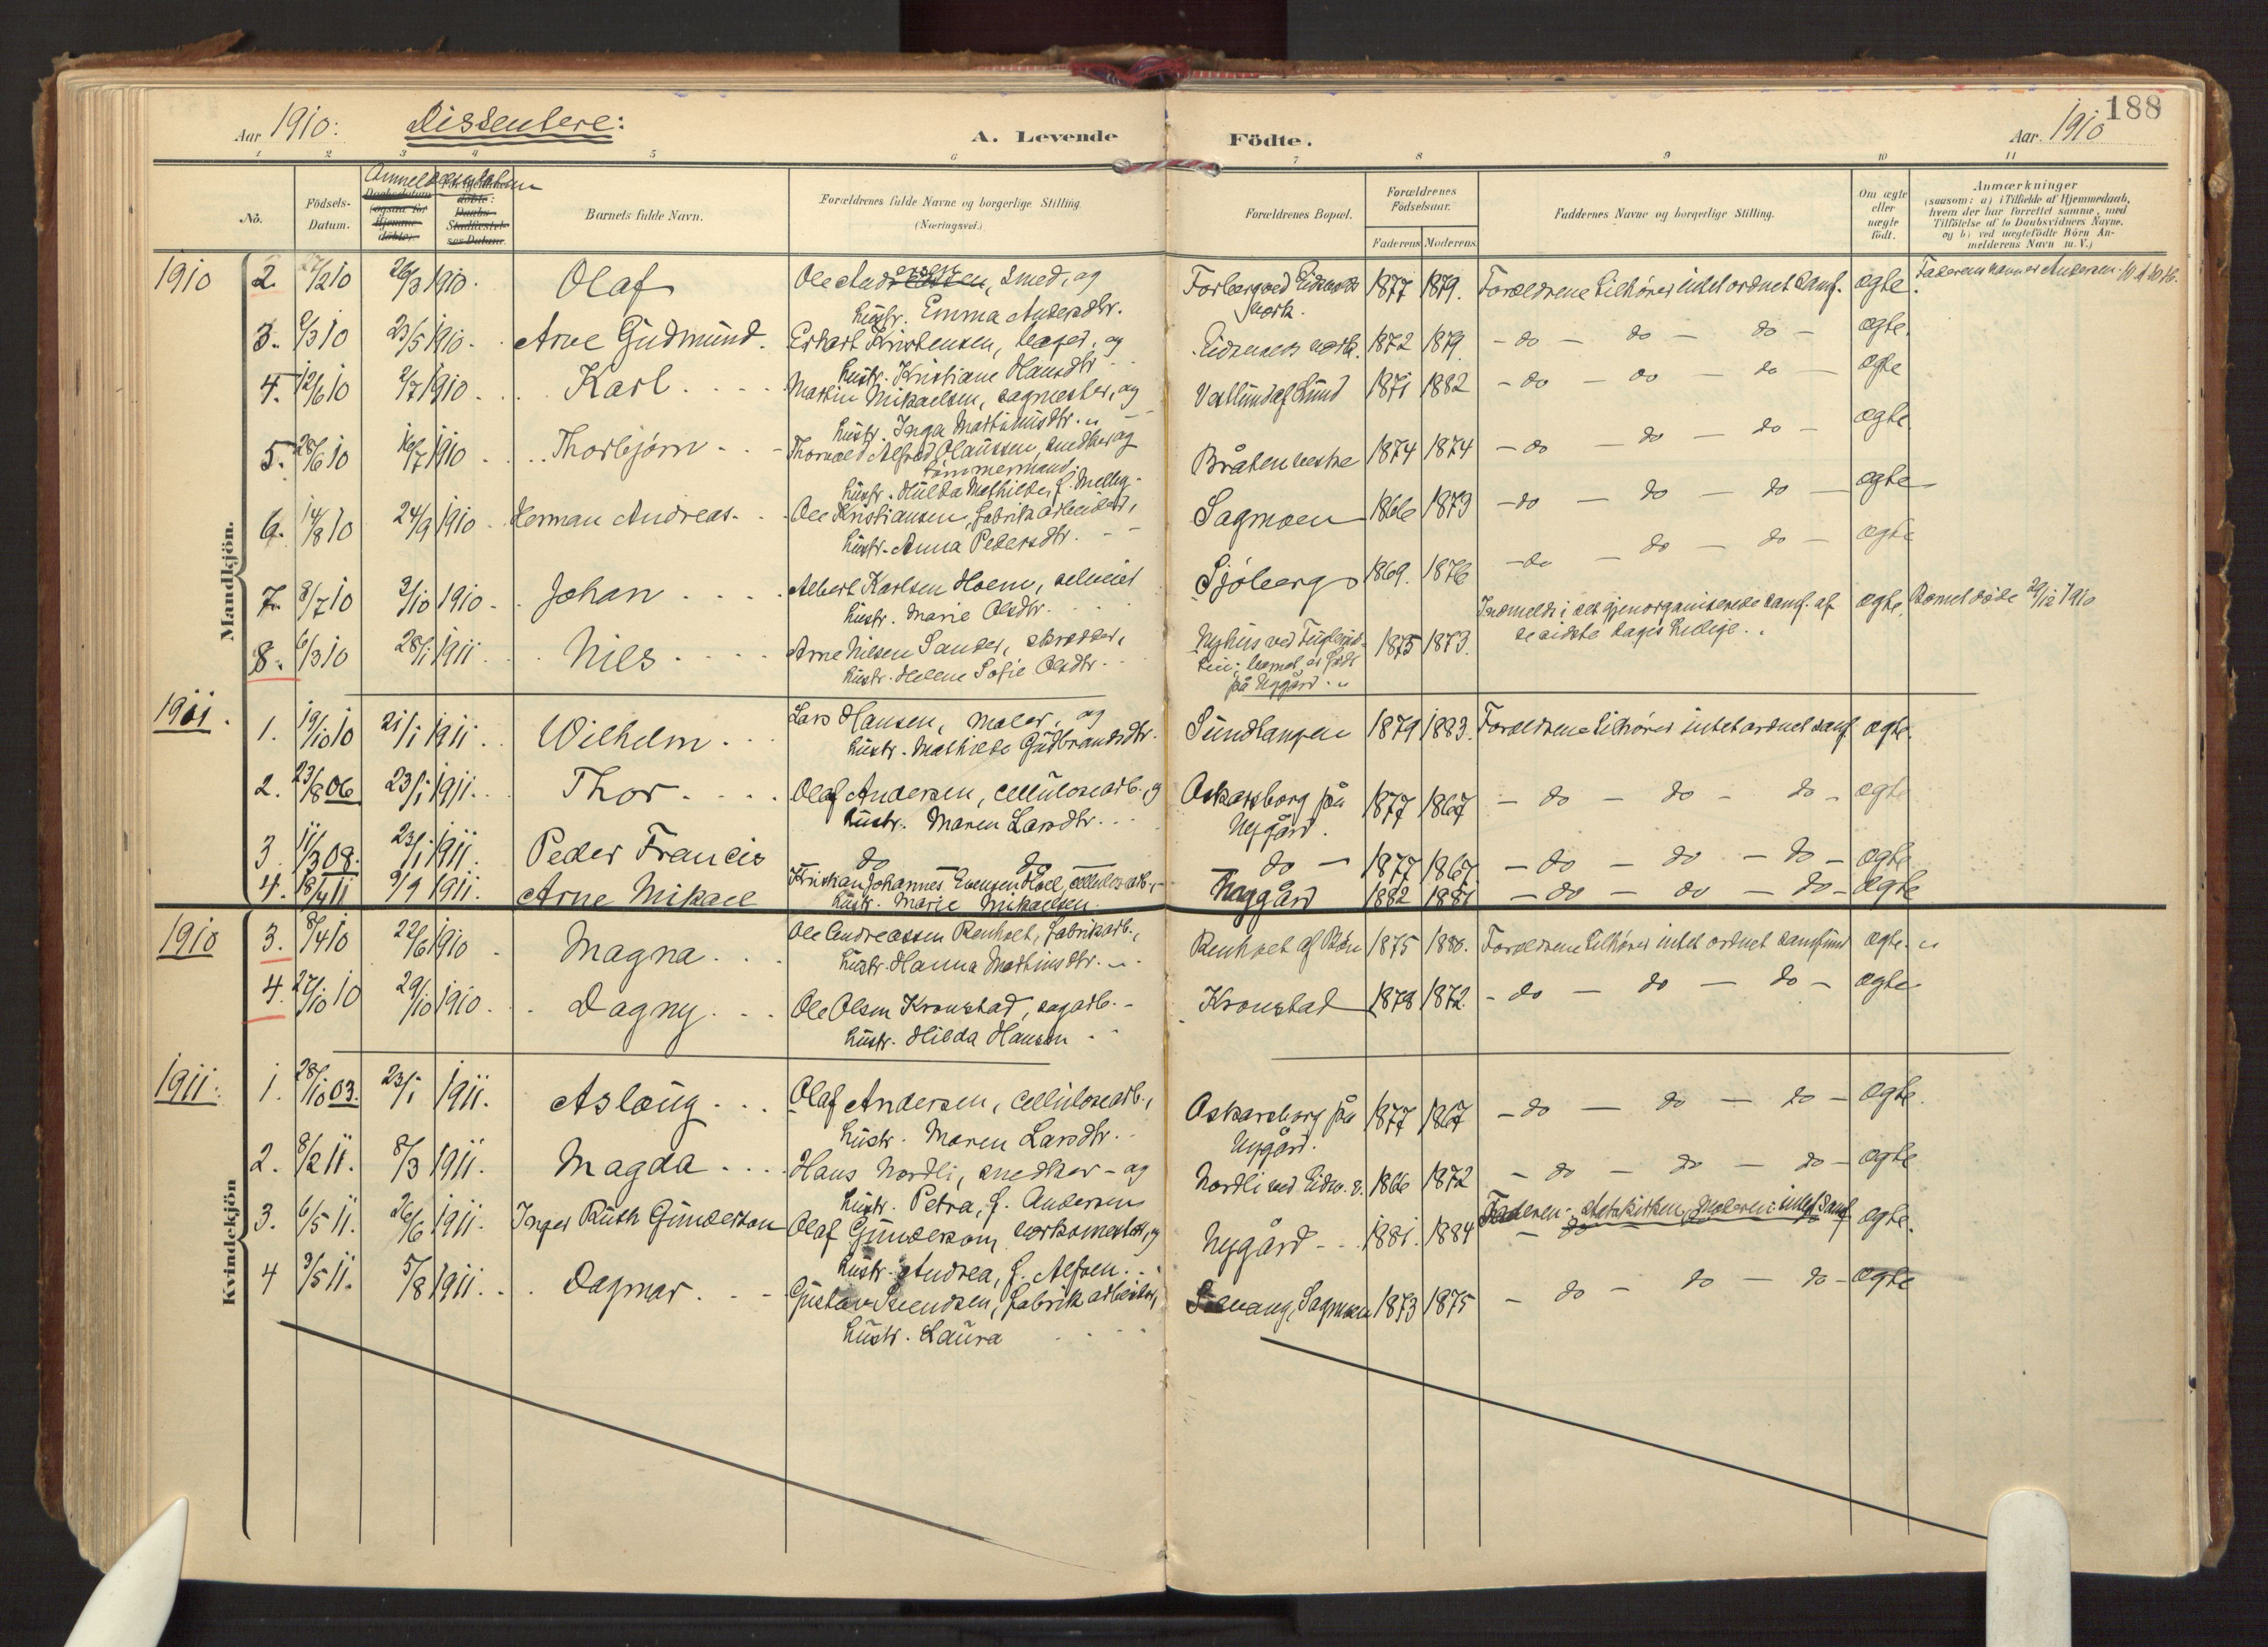 188
Aar 1910: Dissentere: A. Levende Födte. Aar. 1910
1 2 3 4 5 6 7 8 9 10 11
No. Födsels-Datum. Barnets fulde Navn. Forældrenes fulde Navne og borgerlige Stilling. (Næringsvei.) Forældrenes Bopæl. Forældrenes Födselsaar. Faderens Moderens Faddernes Navne og borgerlige Stilling. Om ægte eller uægte födt. Anmærkninger
(saasom: a) i Tilfælde af Hjemmedaab,
hvem der har forrettet samme, med
Tilföielse af to Daabsvidners Navne.
og b) ved uægtefödte Börn An-
melderens Navn m. V.)
Mandkjön.
1910 2. 27/2 10 26/3 1910. Olaf Ole Andersen, smed, og
hustr. Emma Andersdtr. 1877 1879. Forældrene tilhører intet ordnet samf. ægte.
3. 9/3 10 23/5 1910. Arne Gudmund. Erhart Kristensen, og
hustr. Kristiane Hansdtr. Eidsvolds værk. 1872 1879. - do - do - do - ægte.
4. 12/6 10 2/7 1910. Karl Martin Mikaelsen, sagmester, og
hustr. Inga Mathiusdtr. Vestlund af Lund 1871 1882 - do - do - do - ægte
5. 28/6 10 16/7 1910. Thorbjørn Thorvald Alfred Olaussen, snedker og
tømmermand,
hustr. Hulda Mathilde, f. Melleg. Bråten vestre 1874 1874 - do - do - do - ægte.
6. 14/8 10 24/9 1910. Herman Andreas. Ole Kristiansen, fabrikarbeider,
hustr. Anna Pedersdtr. Sagmoen 1866 1873 - do - do - do - ægte
7. 8/7 10 3/10 1910. Johan Albert Karlsen Hoem, selveier
hustr. Marie Olsdtr. Sjøberg 1869. 1876 - do - do - do - ægte
8. 6/3 10 28/1 1911 Nils Arne Nilsen Sander, skrædder,
hustr. Helene Sofie Olsdtr. Nyhus ved
barnet er født
på Nygård. 1875 1873. Indmeldt i det gjenorganiserede samf. af
de sidste dages hellige. ægte. Barnet døde 29/12 1910
1911. 1. 19/10 10 21/1 1911. Wilhelm Lars Hansen, maler, og
hustr. Mathilde Gudbrandsdtr. Sundtangen 1879 1883. Forældrene tilhører intet ordnet samf. ægte.
2. 23/8 06 23/1 1911. Thor Olaf Andersen, cellulosearb. og
hustr. Maren Larsdtr. Oskarsborg på
Nygård. 1877 1867 - do - do - do - ægte
3. 11/3 08. 23/1 1911. Peder Francis do do do - 1877 1867 - do - do - do - ægte
4. 18/4 11 9/9 1911. Arne Mikael Kristian Johannes Evensen Hoel, cellulosearb.
hustr. Marie Mikaelsen. Nygård 1882 1881 - do - do - do - ægte
Kvindekjön
1910 3. 8/4 10 22/6 1910 Magna Ole Andreassen Renholt, fabrikarb.,
hustr. Hanna Mathiusdtr. Renholt af Bøn 1875 1880. Forældrene tilhører intet ordnet samfund ægte.
4. 27/10 10 29/10 1910 Dagny Ole Olsen Kronstad, sagarb.
hustr. Hilda Hansen Kronstad 1878 1872. - do - do - do - ægte
1911. 1. 28/10 03. 23/1 1911. Aslaug Olaf Andersen, cellulosearb.,
hustr. Maren Larsdtr. Oskarsborg på
Nygård. 1877 1867 - do - do - do - ægte.
2. 8/2 11. 8/3 1911. Magda Hans Nordli, snedker - og
hustr. Petra, f. Andersen Nordli ved Eidsv. v. 1866 1872 - do - do - do - ægte
3. 6/5 11. 26/6 1911. Inger Ruth Gunderson Olaf Gunderson, værksmester, og
hustr. Andrea, f. Alfsen. Nygård 1881. 1884 Faderen: statskirken, Moderen: intet samf. ægte.
4 3/5 11. 5/8 1911. Dagmar Gustav Svendsen, fabrikarbeider,
hustr. Laura Sagmoen 1873 1875 - do - do - do - ægte